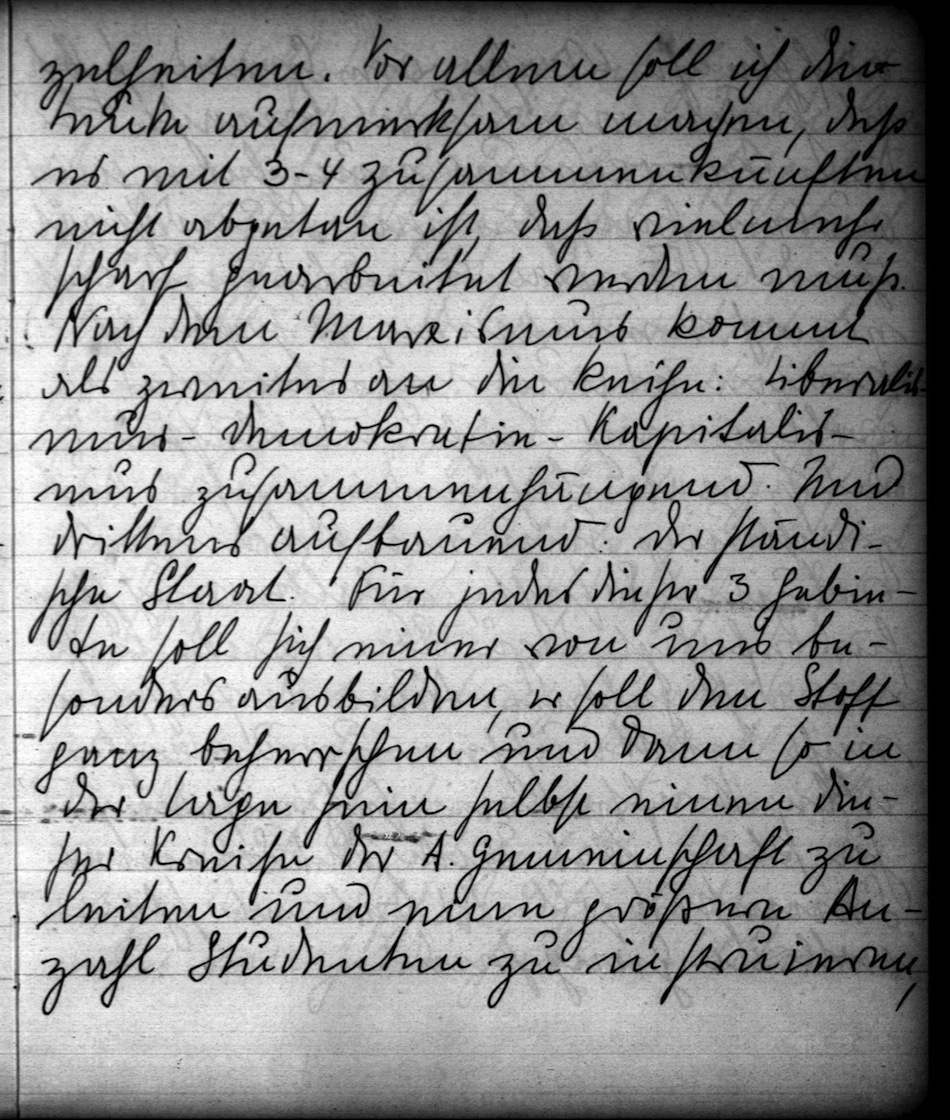 zelheiten. Vor allem soll ich die
Leute aufmerksam machen, daß
es mit 3-4 Zusammenkünften
nicht abgetan ist, daß vielmehr
scharf gearbeitet werden muß.
Nach dem Marxismus kommt
als zweites an die Reihe: Liberalis-
mus - Demokratie - Kapitalis-
mus zusammenhängend. Und
drittens aufbauend: der ständi-
sche Staat. Für jedes dieser 3 Gebie-
te soll sich einer von uns be-
sonders ausbilden, er soll den Stoff
ganz beherrschen und dann so in
der Lage sein selbst einen die-
ser Kreise der A. Gemeinschaft zu
leiten und eine größere An-
zahl Studenten zu instruieren,